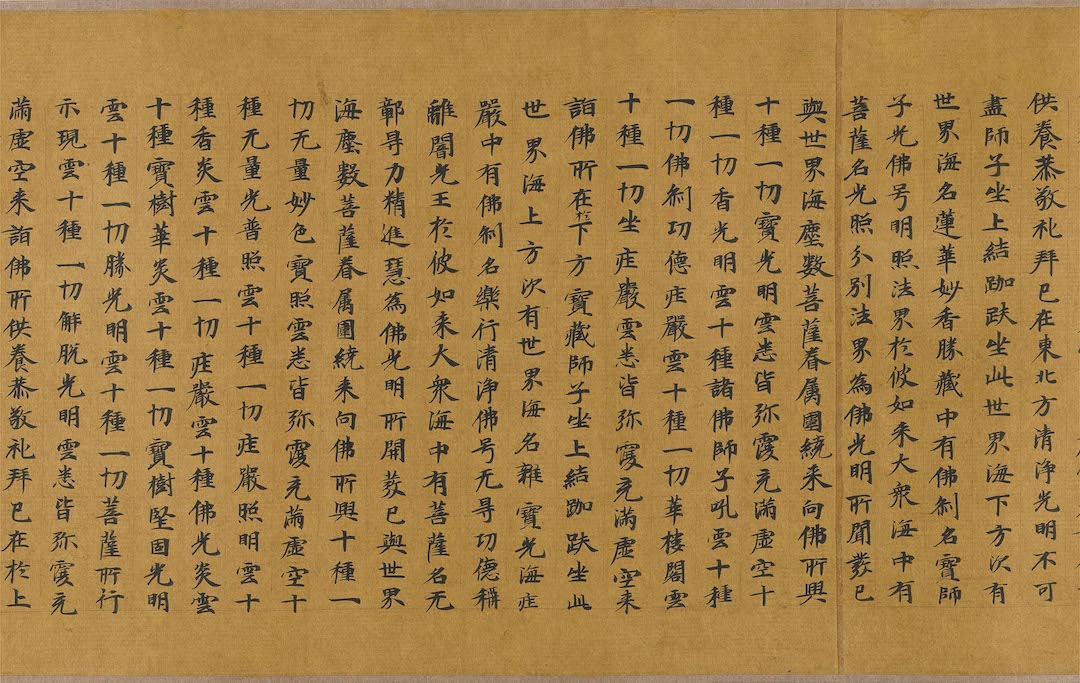 供養恭敬礼拜已在東北方清淨光明不可
盡師子坐上結跏趺坐此世界海下方次有
世界海名蓮華妙香勝藏中有佛刹名寶師
子光佛号明照法界於彼如来大衆海中有
菩薩名光照分別法界為佛光明所開發已
與世界海塵數菩薩眷属圍繞来向佛所興
十種一切寶光明雲悉皆弥覆充滿虛空十
種一切香光明雲十種諸佛師子吼雲十種
一切佛刹功德庄嚴雲十種一切華樓閣雲
十種一切坐庄嚴雲悉皆弥覆充滿虛空来
詣佛所在於下方寶藏師子坐上結跏趺坐此
世界海上方次有世界海名雜寶光海庄
嚴中有佛刹名樂行清淨佛号无㝵功德稱
離闇光王於彼如来大衆海中有菩薩名无
鄣㝵力精進慧為佛光明所開發已與世界
海塵數菩薩眷属圍繞来向佛所興十種一
切无量妙色寶照雲悉皆弥覆充滿虛空十
種无量光普照雲十種一切庄嚴照明雲十
種香炎雲十種一切庄嚴雲十種佛光炎雲
十種寶樹華炎雲十種一切寶樹堅固光明
雲十種一切勝光明雲十種一切菩薩所行
示現雲十種一切解脫光明雲悉皆弥覆充
滿虛空来詣佛所供養恭敬礼拜已在於上